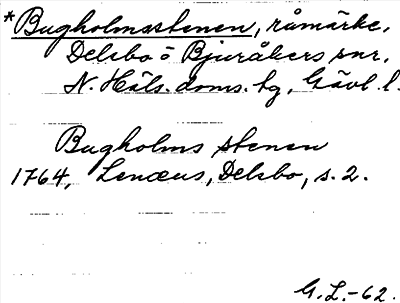 *Bugholmsstenen, råmärke,
Delsbo o Bjuråkers snr,
N. Häls. doms. tg, Gävl. l.
Bugholms stenen
1764, Lenæus, Delsbo, s. 2.
G. L. -62.